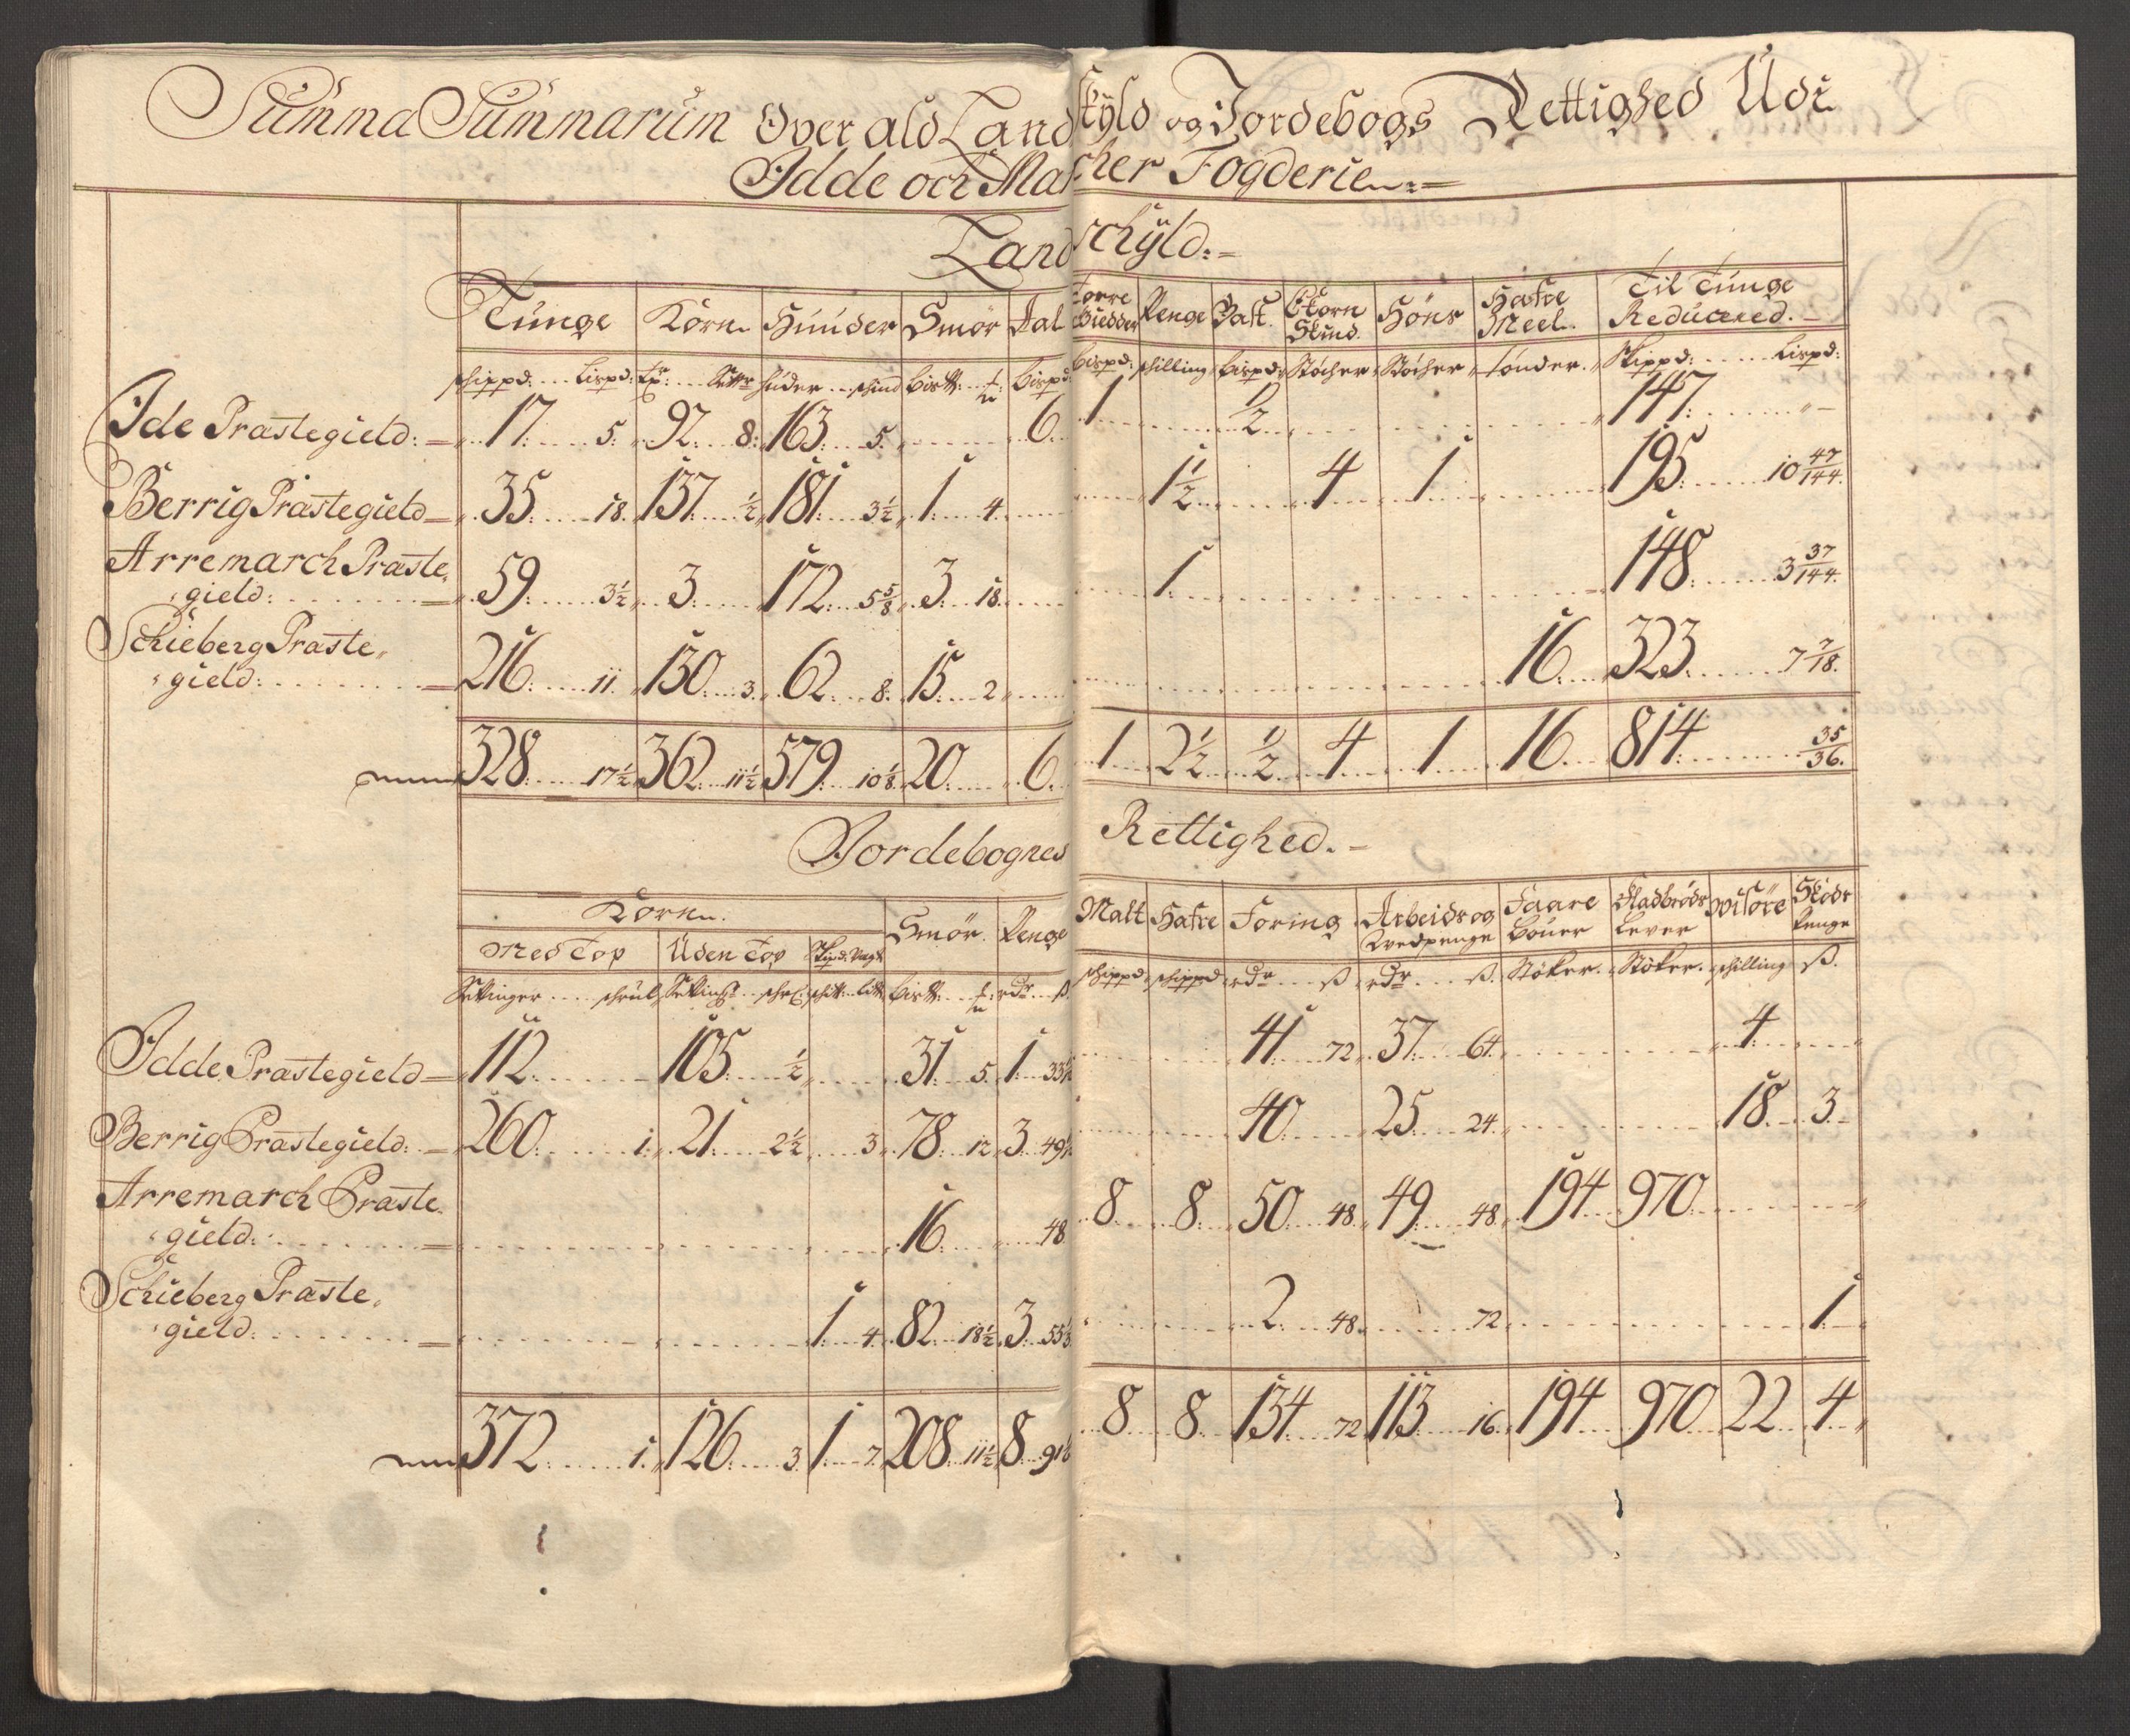 Summa Summarum Over ald Landskÿld og Jordebogs Rettighed Udi
Idde och Marcher Fogderie
Landschÿld:
Tunge Korn Huuder Smör Aal Torre Giedder Penge Past Ekorn Skind Höns Hafre Meel Til Tunge Reducered.
schippd: Lispd: huder schind Bispd Bispd: schilling Bispd: Stöcher Stöcher tönder Skippd: Lispd:
Ide Præstegield: 17 5. 92 8: 163 5. 6. 1 1/2 147
Berrig Præstegield 35 18. 137 1/2 181 3 1/2 1 4. 1 1/2 4 1 195 10 47/144.
Arremarch Præste
gield: 59 3 1/2 3 172 5 5/8 3 18. 1 148 3 37/144.
Schieberg Præste
gield: 216 11. 130 3. 62 8. 15 2 16 323 7 7/18.
328 17 1/2 362 11 1/2 579 10 1/8 20 6. 1 2 1/2 1/2 4 1 16 814 35/36.
Jordebognes Rettighed.
Korn. Smör. Penge Malt Hafre Foring Arbeids og Hvedpenge Faare Bouer Fladbröds Lever Skods Penge
Med Top Uden Top
schippd schippd rdr ß rdr ß. Stöker. Stöker. schilling ß.
Idde Præstegield 112 105 1/2 31 5. 1 41 72 37 64 4
Berrig Præstegield: 260 1. 21 2 1/2 3 78 12 3 40 25 24 18 3
Arremarch Præste
gield: 16 48 8 8 50 48 49 48 194 970
Schieberg Præste
gield: 1 4. 82 18 1/2 3 2 48 72 1
372 1. 126 3. 1 7 208 11 1/2 8 8 8 134 72 113 16 194 970 22 4